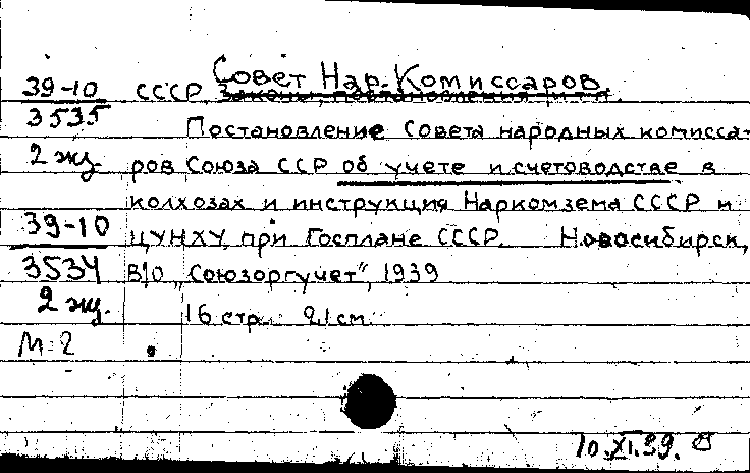 Совет Нар. Комиссаров.
39-10 СССР Законы, постановления и т.п.
3535 Постановление Совета народных комисса-
2 экз. ров Союза ССР об учете и счетоводстве в
колхозах и инструкция Наркомзема СССР и
39-10 ЦУНХУ при Госплане СССР. Новосибирск,
3534 В/О "Союзоргучет", 1939
2 экз. 16 стр. 21 см.
М-2
10.XI.39.